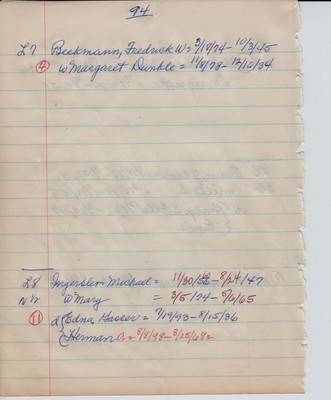 94
L7 Beekmann, Fredrick W = 3/18/74 - 10/3/45
④ w Margaret Dunkle = 11/8/78 - 12/10/34
L8 Ingersler Michael = 11/30/ - 8/24/47
N W w Mary = 3/5/74 - 5/6/65
⑪ d Edna Gasser = 7/19/93 - 8/15/36
Herman = 8/8/93 - 3/25/68